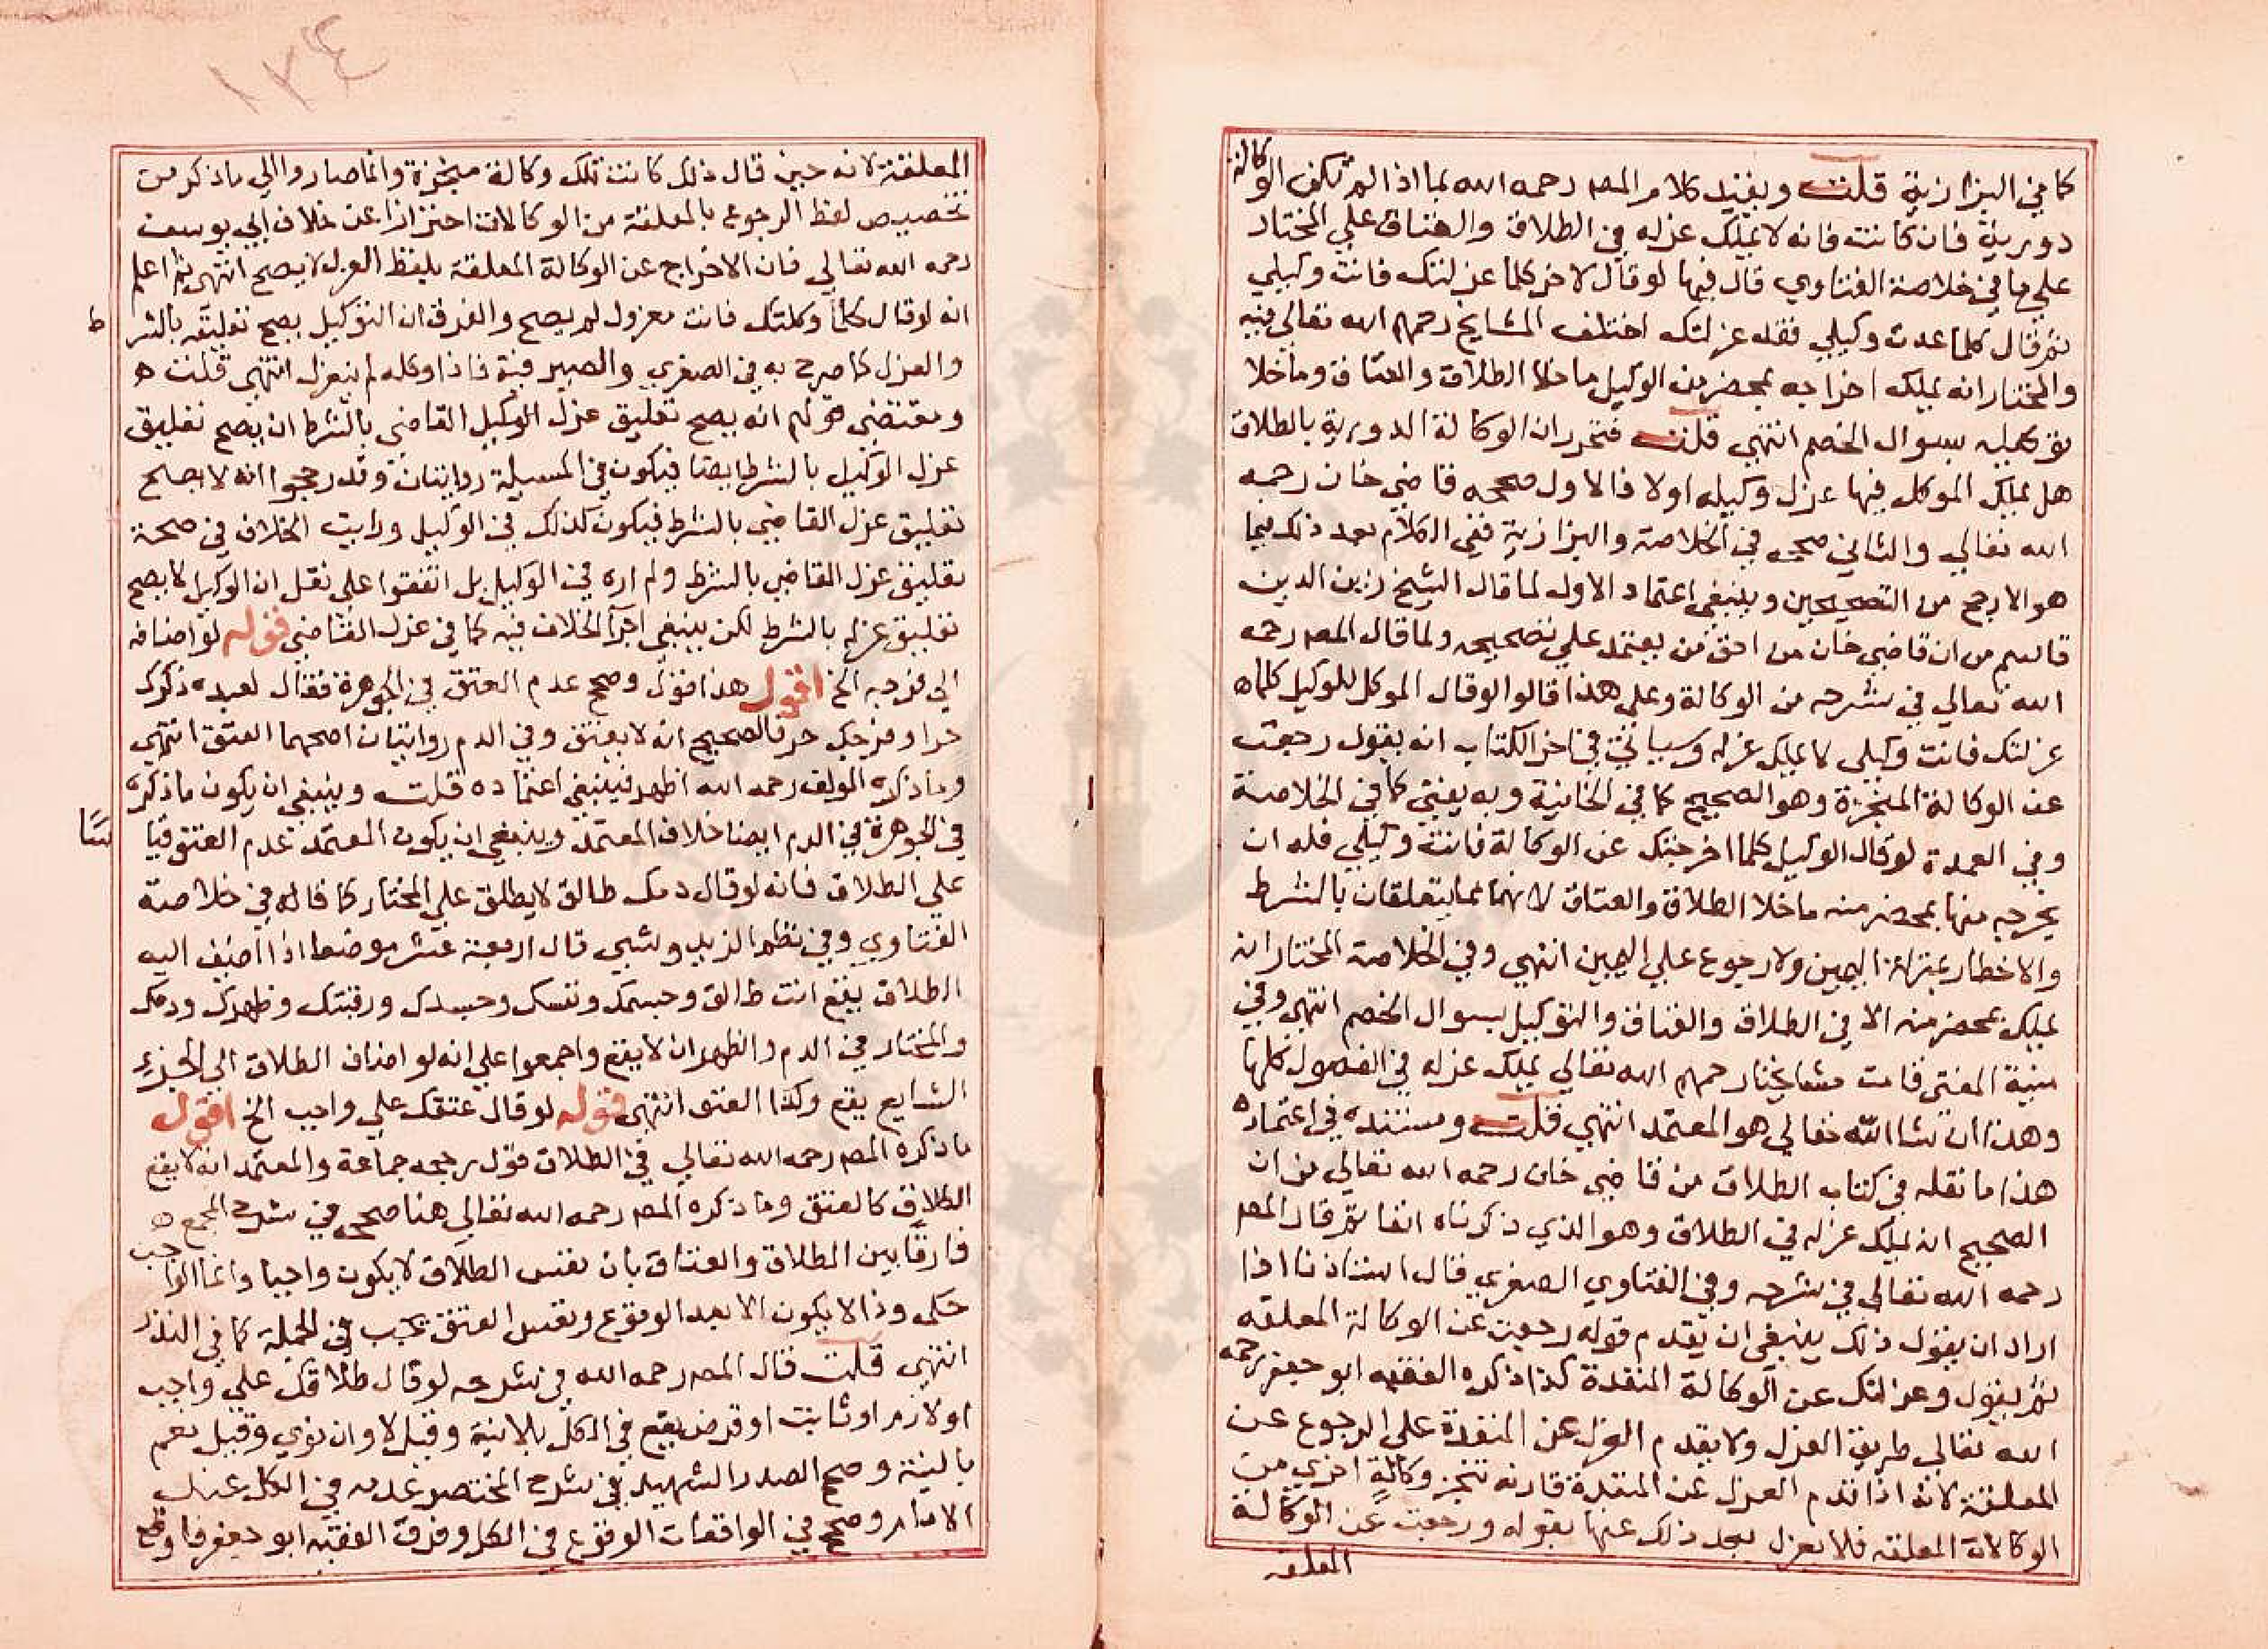 كما في البزازية قلت ويفيد كلام المصر رحمه الله بما اذا لم تكن الوكالة
دورية فان كانت فانه لا يملك عزله في الطلاق والعتاق علي المختار
علي ما في خلاصة الفتاوي قال فيها لو قال لاخر كلما عزلتك فانت وكيلي
ثم قال كلما عدت وكيلي فقد عزلتك اختلف المشايخ رحمهم الله تعالي فيه
والمختار انه يملك اخراجه بمحضر من الوكيل ما خلا الطلاق والعتاق وما خلا
توكيله بسوال الخصم انتهي قلت فتحرر ان الوكالة الدورية بالطلاق
هل يملك الموكل فيها عزل وكيله اولا فالاول صححه قاضي خان رحمه
الله تعالي والثاني صححه في الخلاصة والبزازية ففي الكلام بعد ذلك فيما
هو الارجح من التصحيحين وينبغي اعتماد الاول لما قال الشيخ زين الدين
قاسم من ان قاضي خان من احق من يعتمد علي تصحيحه ولما قال المصر رحمه
الله تعالي في شرحه من الوكالة وعلي هذا قالوا لو قال الموكل للوكيل كلما ه
عزلتك فانت وكيلي لا يملك عزله وسياتي في اخر الكتاب انه يقول رجعت
عن الوكالة المنجزة وهو الصحيح كما في الخانية وبه يفتي كما في الخلاصة
وفي العمدة لو قال الوكيل كلما اخرجتك عن الوكالة فانت وكيلي فله ان
يخرجه منها بمحضر منه ما خلا الطلاق والعتاق لانهما مما يتعلقان بالشرط
والاخطار بمنزلة اليمين ولا رجوع علي اليمين انتهي وفي الخلاصة المختار انه
يملك بمحضر منه الا في الطلاق والعتاق والتوكيل بسوال الخصم انتهي وفي
منية المفتي قامت مشايخنا رحمهم الله تعالي يملك عزله في الفصول كلها
وهذا ان شا الله تعالي هو المعتمد انتهي قلت ومستنده في اعتماده
هذا ما نقله في كتاب الطلاق من قاضي خان رحمه الله تعالي من ان
الصحيح انه يملك عزله في الطلاق وهو الذي ذكرناه انفا ثم قال المصر
رحمه الله تعالي في شرحه وفي الفتاوي الصغري قال استاذنا اذا
اراد ان يقول ذلك ينبغي ان يقدم قوله رجعت عن الوكالة المعلقه
ثم يقول وعزلتك عن الوكالة المنفذة كذا ذكره الفقيه ابو جعفر رحمه
الله تعالي طريق العزل ولا يقدم العزل عن المنفذة علي الرجوع عن
المعلقة لانه اذا قدم العزل عن المنفذة قارنه تنجز وكالة اخري من
الوكالات المعلقه فلا يعزل بعد ذلك عنها بقوله ورجعت عن الوكالة
المعلقه
١٣٤
المعلقة لانه حين قال ذلك كانت تلك وكالة منجزة وانما صاروا الي ما ذكر من
تخصيص لفظ الرجوع بالمعلقة من الوكالات احترازا عن خلاف ابي يوسف
رحمه الله تعالي فان الاخراج عن الوكالة المعلقة بلفظ العزل لا يصح انتهي ثم اعلم
انه لو قال كلما وكلتك فانت معزول لم يصح والفرق ان التوكيل يصح تعليقه بالشر
ط
والعزل كما صرح به في الصغري والصيرفية فاذا وكله لم ينعزل انتهي قلت ه
ومقتضي قولهم انه يصح تعليق عزل الوكيل القاضي بالشرط ان يصح تعليق
عزل الوكيل بالشرط ايضا فيكون في المسيلة روايتان وقد رجحوا انه لا يصلح
تعليق عزل القاضي بالشرط فيكون كذلك في الوكيل ورايت الخلاف في صحة
تعليق عزل القاضي بالشرط ولم اره في الوكيل بل اتفقوا علي نقل ان الوكيل لا يصح
تعليق عزله بالشرط لكن ينبغي اجرآ الخلاف فيه كما في عزل القاضي قوله لو اضافه
الي فرجه الخ اقول هذا قول وصحح عدم العتق في الجوهرة فقال لعبده ذكرك
حر او فرجك حر فالصحيح انه لا يعتق وفي الدم روايتان اصحهما العتق انتهي
وما ذكره المولف رحمه الله اظهر فينبغي اعتماده قلت وينبغي ان يكون ما ذكره
في الجوهرة في الدم ايضا خلاف المعتمد وينبغي ان يكون المعتمد عدم العتق قيا
سًا
علي الطلاق فانه لو قال دمك طالق لا يطلق علي المختار كما قاله في خلاصة
الفتاوي وفي نظم الزندويستي قال اربعة عشر موضعا اذا اضيف اليه
الطلاق يقع انت طالق وجسمك ونفسك وجسدك ورقبتك وظهرك ودمك
والمختار في الدم والظهر ان لا يقع واجمعوا علي انه لو اضاف الطلاق الي الجزء
الشايع يقع وكذا العتق انتهي قوله لو قال عتقك علي واجب الخ اقول
ما ذكره المصر رحمه الله تعالي في الطلاق قول رجحه جماعة والمعتمد انه لا يقع
الطلاق كالعتق وما ذكره المصر رحمه الله تعالي هنا صححه في شرح المجمع ه
فارقا بين الطلاق والعتاق بان نفس الطلاق لا يكون واجبا وانما الواجب
حكمه وذا لا يكون الا بعد الوقوع ونفس العتق يجب في الجملة كما في النذر
انتهي قلت قال المصر رحمه الله في شرحه لو قال طلاقك علي واجب
او لازم او ثابت او فرض يقع في الكل بلا نية وقيل لا وان نوي وقيل نعم
بالنية وصحح الصدر الشهيد في شرح المختصر عدمه في الكل عند
الامام وصحح في الواقعات الوقوع في الكل وفرق الفقيه ابو جعفر فاوقع